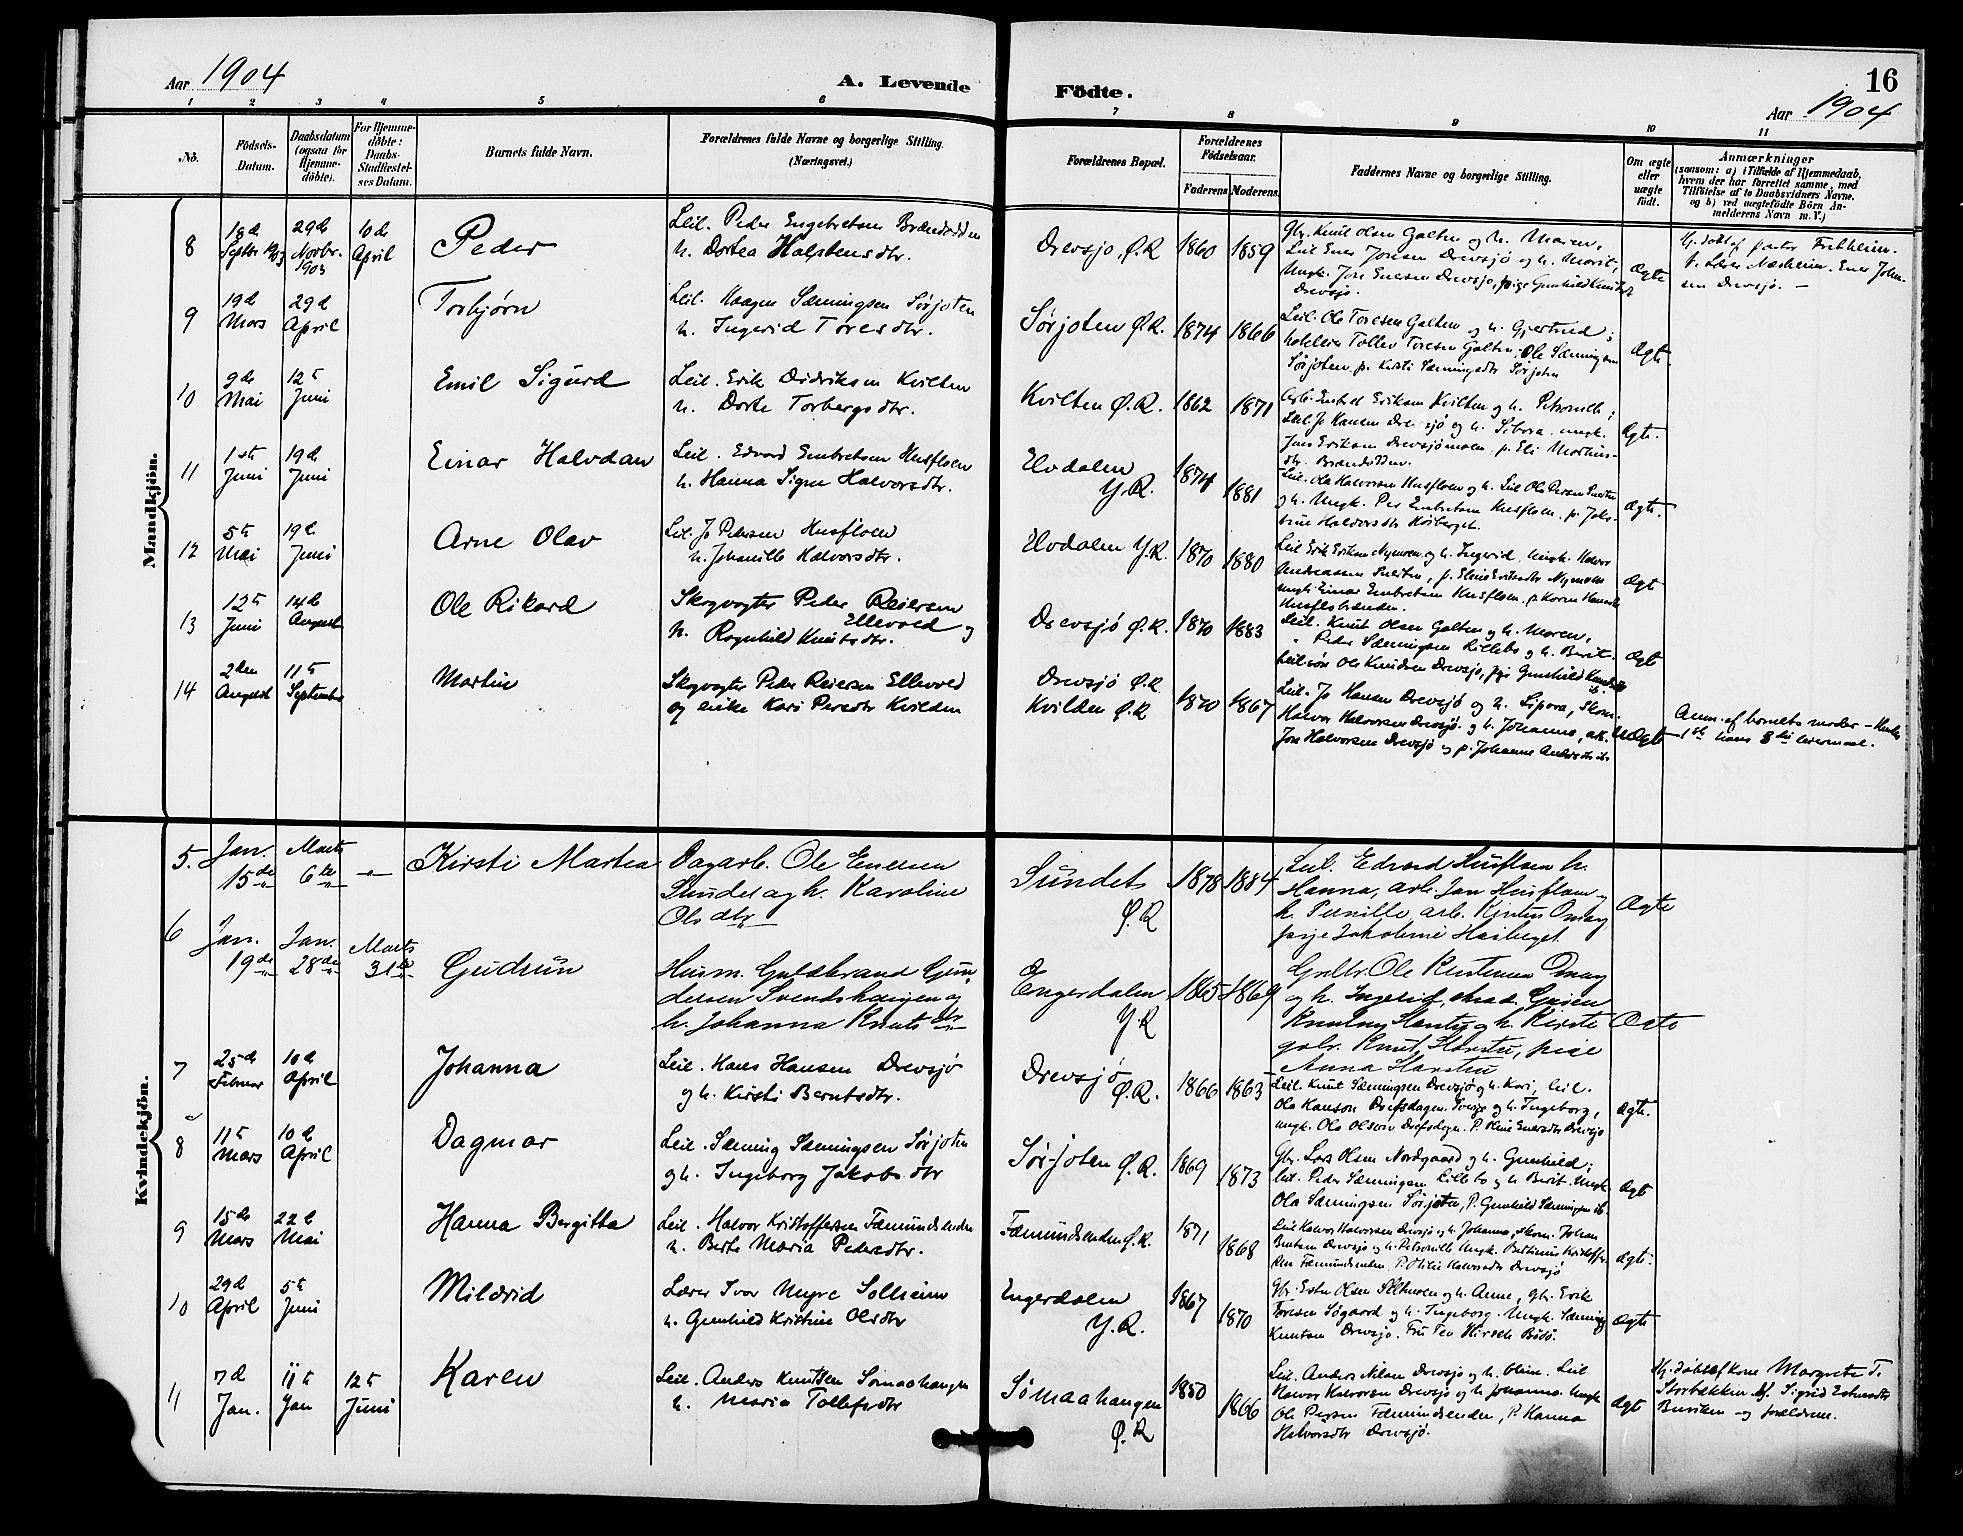 Aar 1904
A. Levende
Födte.
16
Aar 1904
1 2 3 4 5 6 7 8 9 10 11
No.
Födsels-
Datum.
Daabsdatum
(ogsaa for
Hjemme-
döbte).
For Hjemme-
döbte:
Daabs-
Stadfæstel-
ses Datum.
Barnets fulde Navn.
Forældrenes fulde Navne og borgerlige Stilling.
(Næringsvei.)
Forældrenes Bopæl.
Forældrenes
Födselsaar.
Faderens. Moderens.
Faddernes Navne og borgerlige Stilling.
Om ægte
eller
uægte
födt.
Anmærkninger
(saasom: a) i Tilfælde af Hjemmedaab,
hvem der har forrettet samme, med
Tilföielse af to Daabsvidners Navne.
og b) ved uægtefödte Börn An-
melderens Navn m. V.)
Mandkjön.
8
18d
Septbr
29d
Novbr.
1903
10d
April
Peder
Leil. Peder Engebretsen Brændodden
h. Dortea Halstensdtr.
Drevsjo Ø.R
1860
1859
Gbr. Knut Olsen Galten og h. Maren,
Leil Ener Jonsen Drevsjö og h. Marit,
Ungk. Jon Enersen Drevsjö, pige Gunhild
Drevsjö.
Ægte
Hj. döbt af pastor
Ener John-
sen Drevsjö. —
9
19d
Mars
29d
April
Torbjørn
Leil. Haagen Sæmingsen Sørjoten
h. Ingerid Toresdtr.
Sørjoten Ø.R.
1874
1866
Leil. Ole Toresen Galten og h. Gjertrud;
Tollev Toresen Galten, Ole Sæmingsen
Sørjoten, p. Kirsti Sæmingsdtr Sørjoten
Ægte
10
9de
Mai
12te
Juni
Emil Sigurd
Leil. Erik Didriksen Kvilten
h. Dorte Torbergsdtr.
Kvilten Ø.R.
1862
1871
Eriksen Kvilten og h. Petronille;
Leil. Jo Hansen Drevsjö og h. Sibora. ungk.
Jens Eriksen Drevsjömoen, p. Eli Martins-
dtr. Brændodden.
Ægte.
11
1ste
Juni
19d
Juni
Einar Halvdan
Leil. Edvard Embretsen Husfloen
h. Hanna Signe Halvorsdtr.
Elvdalen
Y.R.
1874
1881
Leil. Ola Halvorsen Husfloen og h. Leil Ole Persen
og h. Ungk. Per Embretsen Husfloen, p.
Halvorsdtr Høiberget.
Ægte.
12
5te
Mai
19d
Juni
Arne Olav
Leil. Jo Petersen Husfloen
h. Johanille Halvorsdtr.
Elvdalen Y.R.
1870
1880
Leil Erik Eriksen Nymoen og h. Ingerid. Ungk. Halvor
Andreassen p. Eline Eriksdtr Nymoen
ungk Einar Embretsen Husfloen. p. Karen
Ægte
13
12te
Juni
14d
August
Ole Rikard
Skogvogter Peder Reiersen
Ellevold og
h. Ragnhild Knutsdtr.
Drevsjö Ø.R.
1870
1883
Leil. Knut Olsen Galten og h. Maren,
" Peder Sæmingsen Lillebo og h. Berit.
Leilsön Ole Knudsen Drevsjö, pige Gunhild
Ægt
14
2den
August
11te
September
Martin
Skogvogter Peder Reiersen Ellevold
og enke Kari Pedersdtr Kvilden
Drevsjö Ø.R
Kvilden Ø.R
1870
1867
Leil. Jo Hansen Drevsjö og h. Sipora, Skom.
Halvor Halvorsen Drevsjö og h. Johanna, arb.
Jon Halvorsen Drevsjö og p. Johanne Andersdtr ib.
Uægt
Anm. af barnets moder —
1ste hans 3die leiermaal.
Kvindekjön.
5.
Jan.
15de
Marts
6te
Kirsti Martea
Dagarb. Ole Enersen
Sundet og h. Karoline
Olsdtr
Sundet
Ø.R
1878
1884
Leil. Edvard Husfloen h.
Hanna, arb. Jan Husfloen og
h. Pernille, arb.
pige Høiberget
Ægte
6
Jan.
19de
Jan.
28de
Marts
31te
Gudrun
Husm. Guldbrand Gun-
dersen Svendshaugen og
h. Johanna Knutsdtr
Engerdalen
Y.R
1865
1869
Gaardbr. Ole Kristensen
og h. Ingerid,
h. Kirste
gbr. Knut pige
Anna
Ægte
7
25d
Februar
10d
April
Johanna
Leil. Hans Hansen Drevsjö
og h. Kirsti Berntsdtr.
Drevsjö
Ø.R.
1866
1863
Leil. Knut Sæmingsen Drevsjö og h. Kari, Leil.
Ola Hansen og h. Ingeborg,
ungk. Ola Olsen P. Oline Enersdtr Drevsjö
Ægte.
8
11te
Mars
10d
April
Dagmar
Leil. Sæming Sæmingsen Sørjoten
og h. Ingeborg Jakobsdtr
Sørjoten Ø.R.
1869
1873
Gbr. Lars Olsen Nordgaard og h. Gunhild;
Leil. Peder Sæmingsen Lillebo og h. Berit. Ungk.
Ola Sæmingsen Sørjoten, P. Gunhild Sæmingsen ib.
Ægt
9
15de
Mars
22d
Mai
Hanna Bergitta
Leil. Halvor Kristoffersen Fæmundsenden
h. Berte Maria Pedersdtr.
Fæmundsenden Ø.R.
1871
1868
Leil Halvor Halvorsen Drevsjö og h. Johanna, Skom. Johan
Berntsen Drevsjö og h. Petronille Ungk. Kristoffer-
sen Fæmundsenden, P. Halvorsdtr Drevsjö
Ægte.
10
29d
April
5te
Juni
Mildrid
Lærer Ivar Myre Solheim
h. Gunhild Kristine Olsdtr
Engerdalen
Y.R.
1867
1870
Gbr. Olsen og h. Anne, gbr. Erik
Toresen Søgaard og h. Ingeborg. Ungk. Sæming
Knutsen Drevsjö. Fru Tea Hirsch Bodö.
Ægte
11
7d
Jan.
11te
Jan
12te
Juni
Karen
Leil. Anders Knutsen Sömaahaugen
h. Maria Tollefsdtr
Sömaahaugen
Ø.R
1850
1866
Leil. Anders Nilsen Drevsjö og h. Oline. Leil
Halvor Halvorsen Drevsjö og h Johanna. Ungk
Ole Persen Fæmundsenden, P. Hanna
Halvorsdtr Drevsjö.
Ægt
Hj. döbt af kone Margrete T.
Storbækken. Sigrid
Burviken og forældrene.